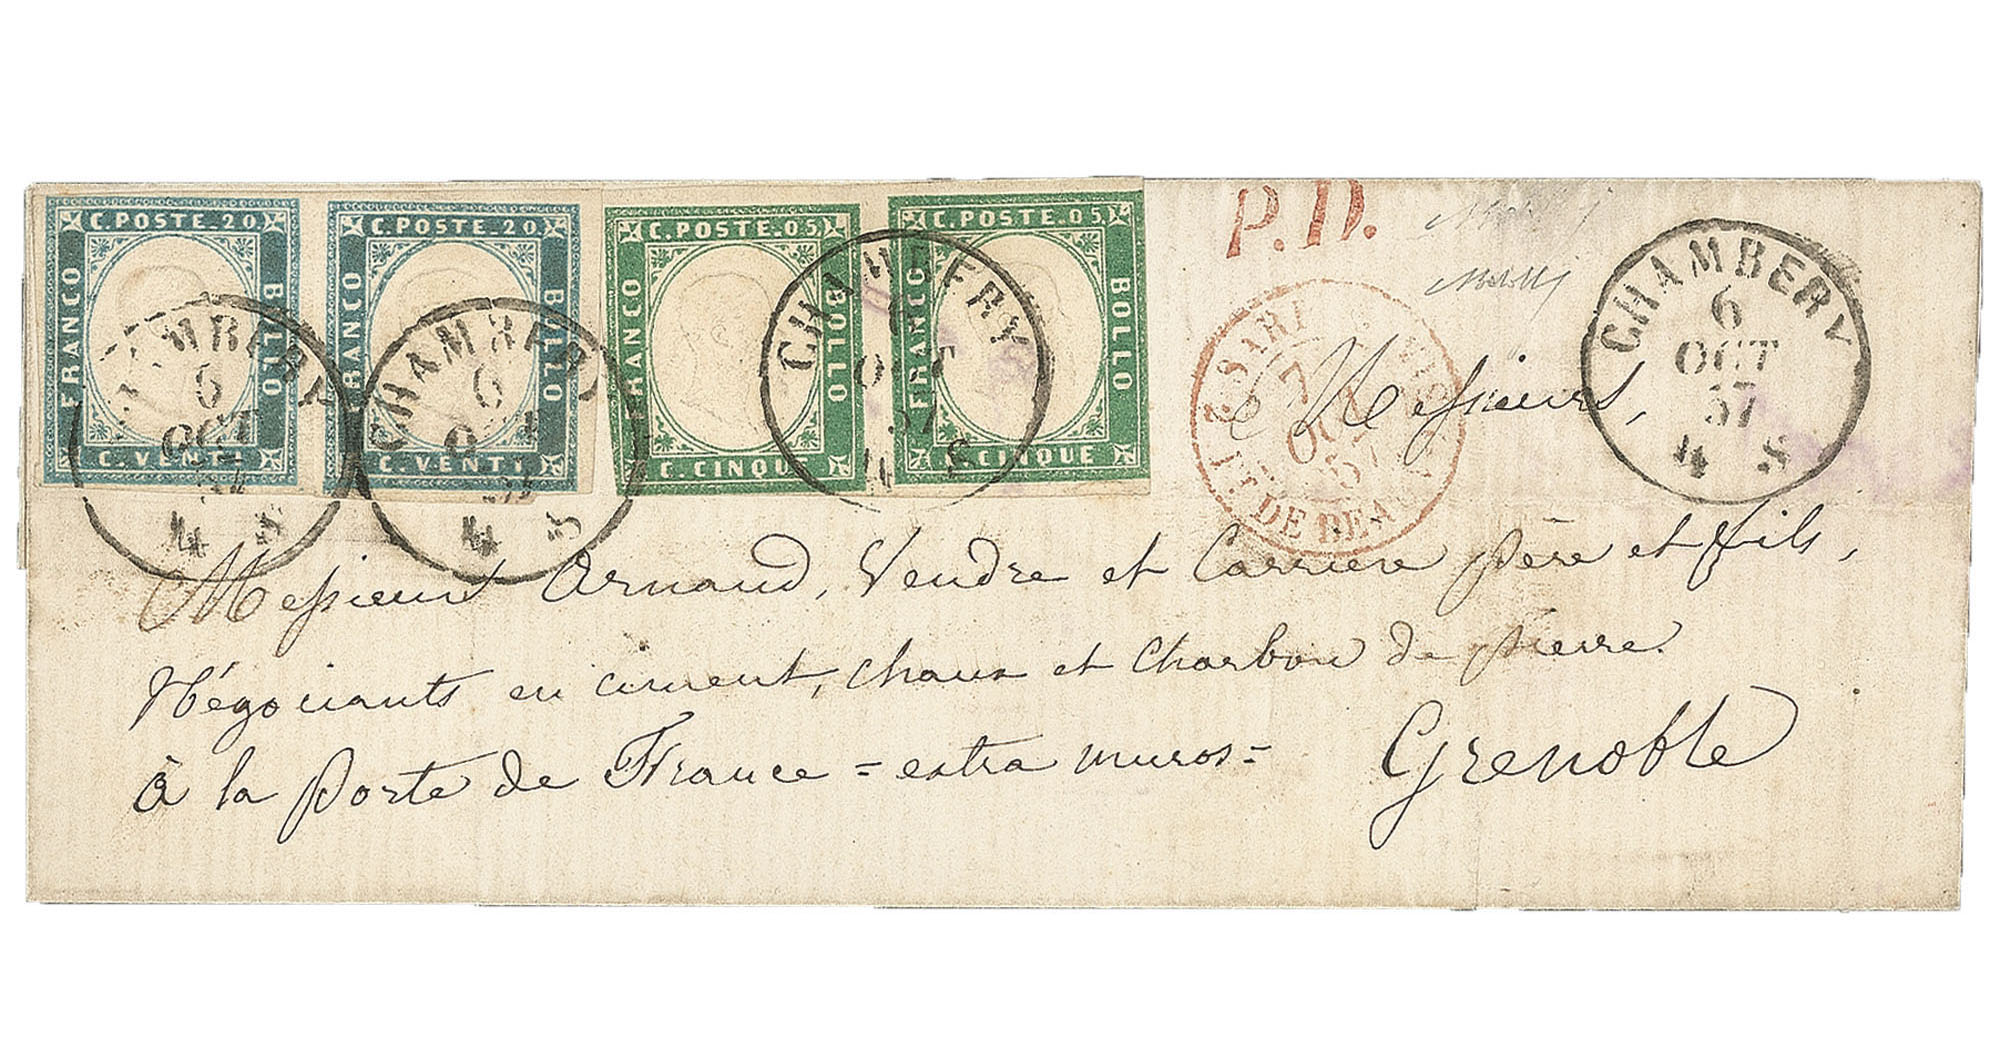 C. POSTE. 20
FRANCO
BOLLO
C. VENTI
C. POSTE. 20
FRANCO
BOLLO
C. VENTI
C. POSTE. 05
FRANCO
BOLLO
C. CINQUE
C. POSTE. 05
FRANCO
BOLLO
C. CINQUE
CHAMBERY
6
OCT
57
4 S
CHAMBERY
6
OCT
57
4 S
CHAMBERY
6
OCT
57
4 S
P.D.
7
OCT
57
DE BEA
CHAMBERY
6
OCT
57
4 S
Messieurs,
Messieurs Arnaud, Vendre et Carriere père et fils,
Négociants en ciment, chaux et charbon de pierre.
à la porte de France = extra muros =
Grenoble